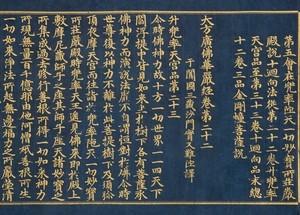 第五會在兜率陁天一切妙寶所莊嚴
殿說十迴向法從第二十二卷升兜率
天宮品至第二十三卷十迴向品末總
十二卷三品 金剛幢菩薩說
大方廣佛華嚴經卷第二十二
于闐國三藏沙門實叉難陀譯
升兜率天宮品第二十三
尒時佛神力故十方一切世界一一四天下
閻浮提中皆見如來坐於樹下各有菩薩承
佛神力而演說法靡不自謂恒對於佛尒時
世尊復以神力不離於此菩提樹下及須弥
頂夜摩天宮而往詣於兜率陁天一切妙寶
所莊嚴殿時兜率天王遥見佛來即於殿上
敷摩尼藏師子之座其師子座天諸妙寶之
所集成過去修行善根所得一切如來神力
所現無量百千億那由他阿僧祇善根所生
一切如來淨法所起無邊福力之所嚴瑩清